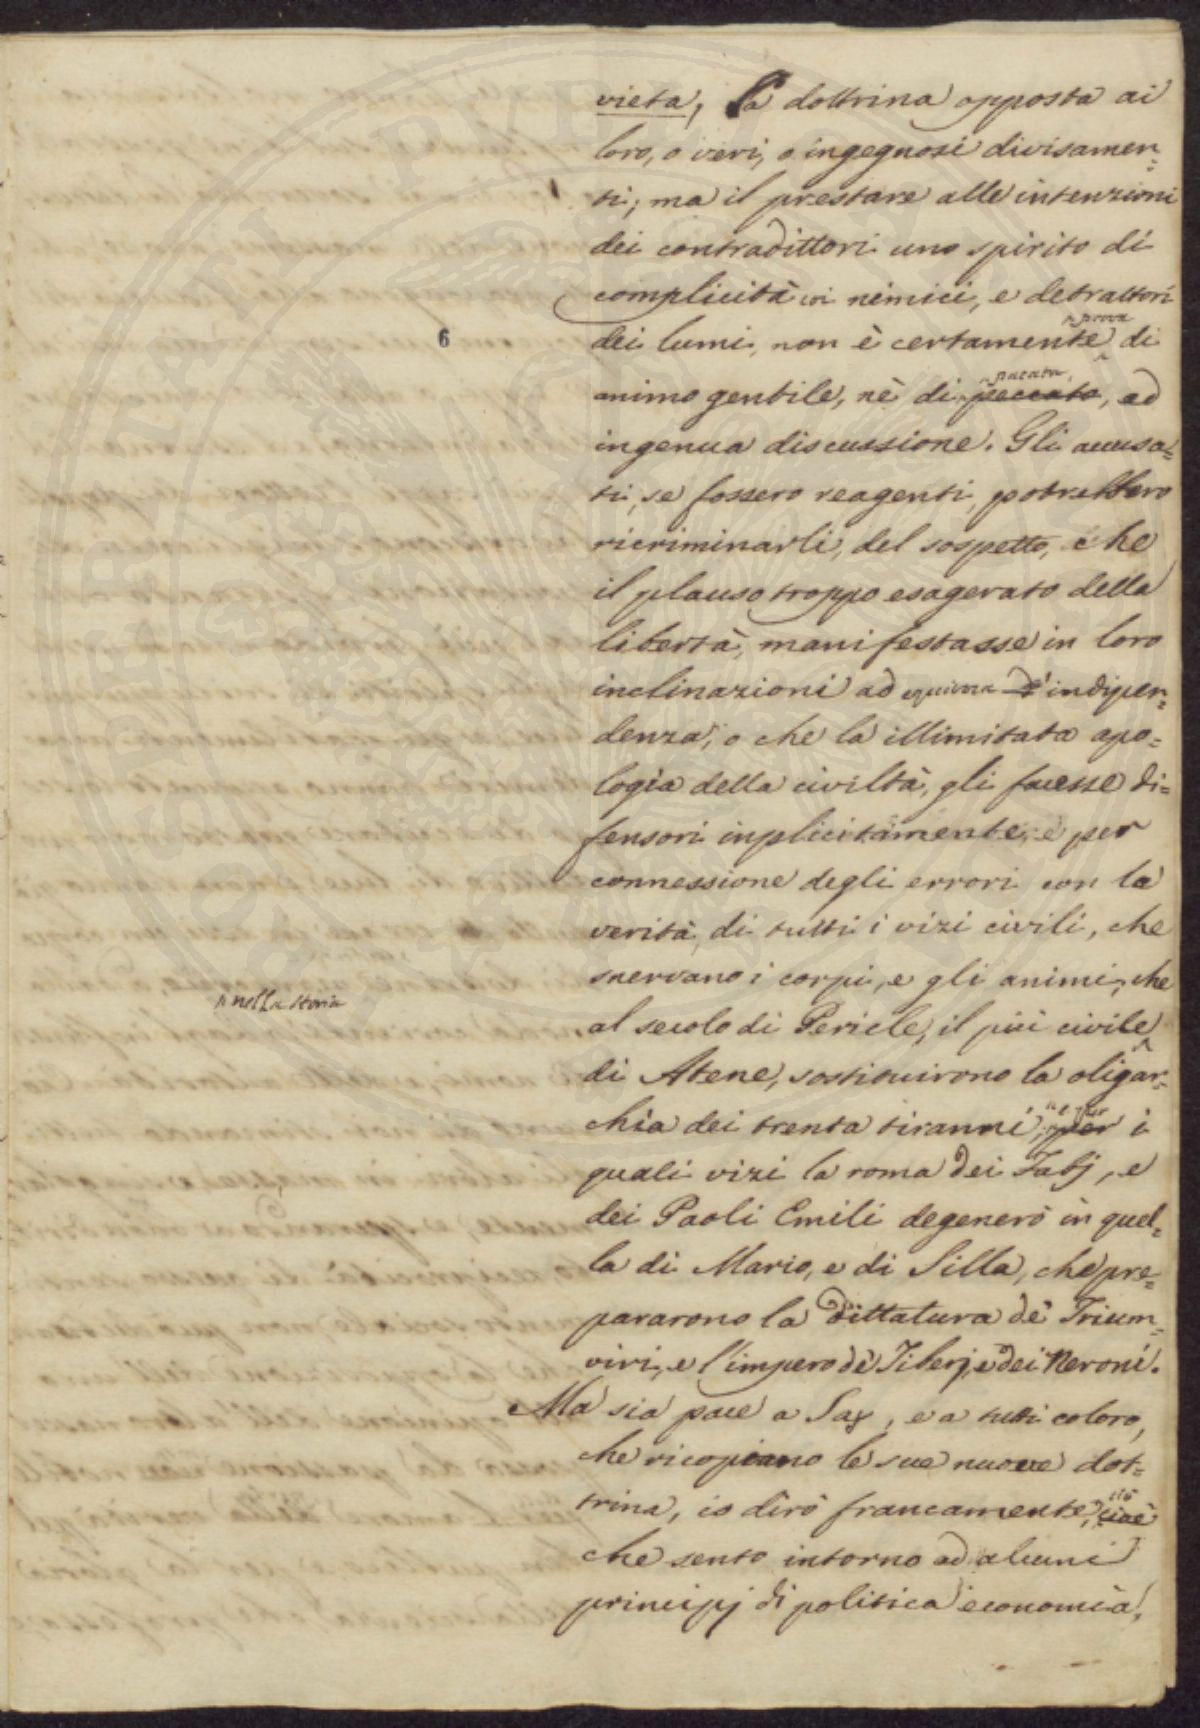 vieta, la dottrina opposta ai
loro, o veri, o ingegnosi divisamen=
ti; ma il prestare alle intenzioni
dei contradittori uno spirito di
complicità coi nemici, e detrattori
6
dei lumi, non è certamente prova di
animo gentile, nè di peccato pacata, ad
ingenua discussione. Gli accusa=
ti, se fossero reagenti, potrebbero
ricriminarli, del sospetto, che
il plauso troppo esagerato della
libertà, manifestasse in loro
inclinazioni ad d'indipen=
denza, o che la illimitata apo=
logia della civiltà, gli facesse di=
fensori inplicitamente, e per
connessione degli errori con la
verità, di tutti i vizi civili, che
snervano i corpi, e gli animi, che
nella storia
al secolo di Pericle, il più civile
di Atene, sostituirono la oligar=
chia dei trenta tiranni, per i
quali vizi la roma dei Fabj, e
dei Paoli Emili degenerò in quel=
la di Mario, e di Silla, che pre=
pararono la dittatura de' Trium=
viri, e l'impero de' Tiberj, e dei Neroni.
Ma sia pace a Say, e a tutti coloro,
che ricopiano le sue nuove dot=
trina, io dirò francamente, cioè ciò
che sento intorno ad alcuni
principj di politica economia,